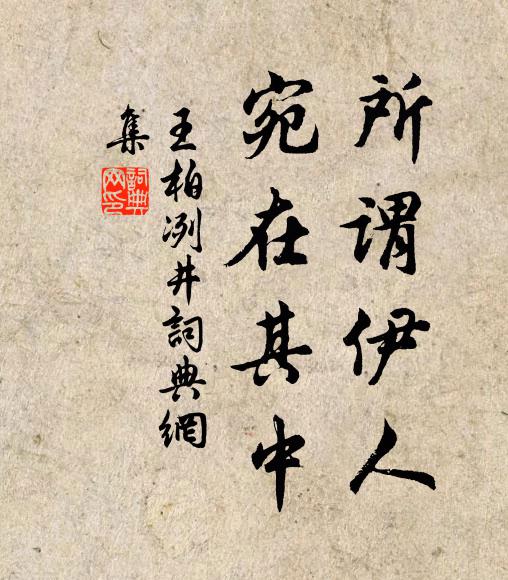 所謂伊人
宛在其中
王柏冽井詞典網
集
詞典網印